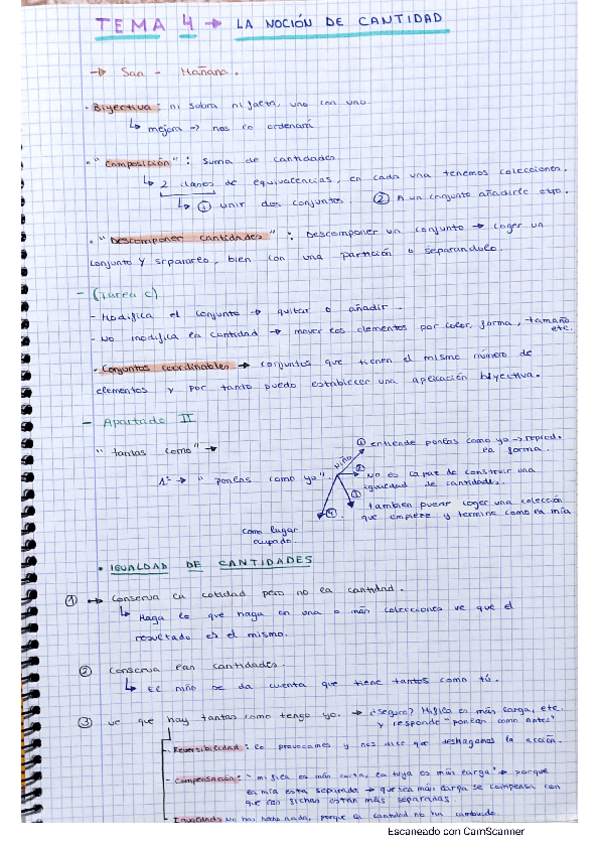 TEMA 4 → LA NOCIÓN DE CANTIDAD
→ San - Mañana.
• Biyectiva: ni sobra ni falta, uno con uno.
↳ mejora → nos lo ordenará
• "Composición": Suma de cantidades.
↳ 2 clases de equivalencias, en cada una tenemos colecciones.
↳ ① unir dos conjuntos. ② A un conjunto añadirle otro.
• "Descomponer cantidades": Descomponer un conjunto → coger un
conjunto y separarlo, bien con una partición o separándolo.
- (Tarea c)
- Modifica el conjunto → quitar o añadir.
- No modifica la cantidad → mover los elementos por color, forma, tamaño
etc.
• Conjuntos coordinables → conjuntos que tienen el mismo número de
elementos y por tanto puedo establecer una aplicación biyectiva.
- Apartado II
"tantas como" →
1º → "ponlas como yo"
Niño
① entiende ponlas como yo → reprod.
la forma.
② No es capaz de construir una
igualdad de cantidades.
③ también puede coger una colección
que empiece y termine como la mía
④
como lugar
ocupado.
• IGUALDAD DE CANTIDADES
① → Conserva la cotidad pero no la cantidad.
↳ Haga lo que haga en una o más colecciones ve que el
resultado es el mismo.
② Conserva las cantidades.
↳ El niño se da cuenta que tiene tantos como tú.
③ ve que hay tantas como tengo yo. → ¿seguro? Mi fila es más larga, etc.
y responde "ponlas como antes"
- Reversibilidad: lo provocamos y nos dice que deshagamos la acción.
- Compensación: "mi fila es más corta, la tuya es más larga" → porque
la mía está separada → que sea más larga se compensa con
que las fichas están más separadas.
No has hecho nada, porque la cantidad no ha cambiado.
Escaneado con CamScanner